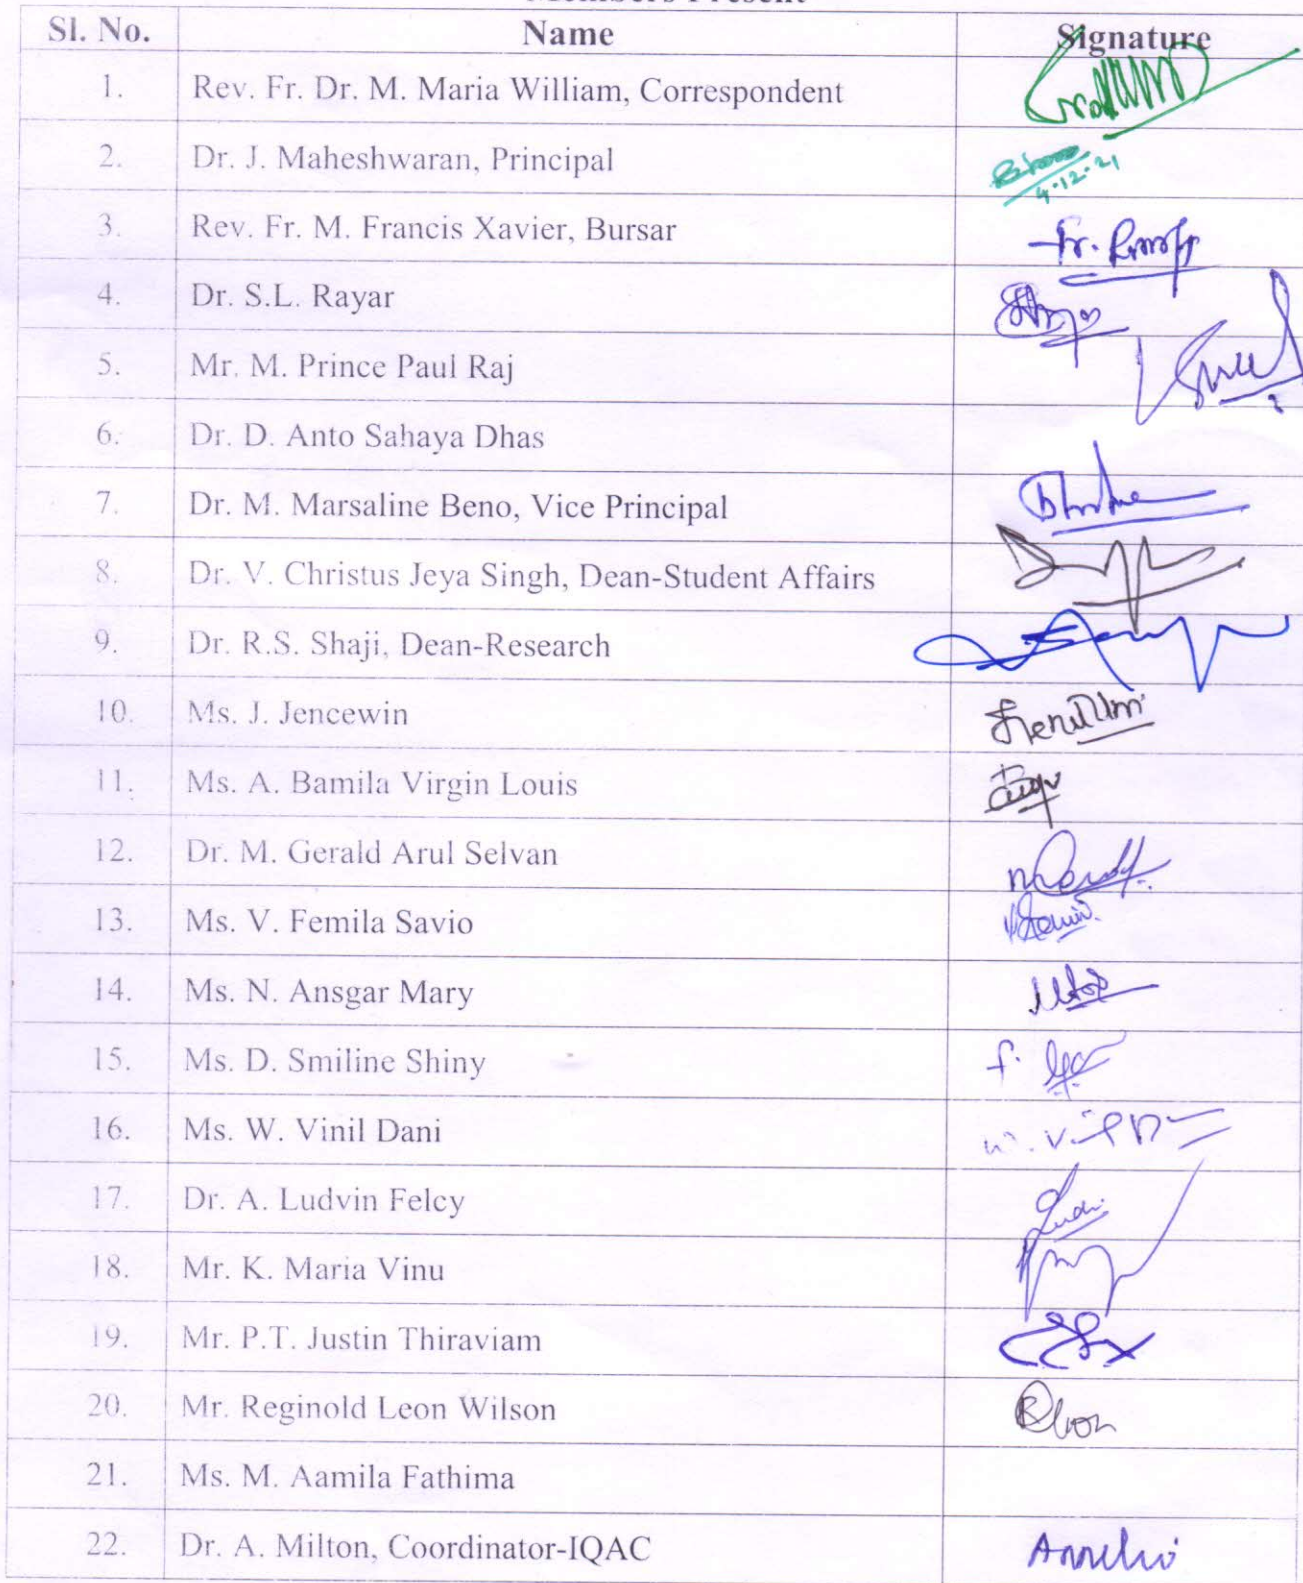 Members Present
Sl. No. Name Signature
1. Rev. Fr. Dr. M. Maria William, Correspondent
2. Dr. J. Maheshwaran, Principal 4.12.21
3. Rev. Fr. M. Francis Xavier, Bursar Fr.
4. Dr. S.L. Rayar
5. Mr. M. Prince Paul Raj
6. Dr. D. Anto Sahaya Dhas
7. Dr. M. Marsaline Beno, Vice Principal
8. Dr. V. Christus Jeya Singh, Dean-Student Affairs
9. Dr. R.S. Shaji, Dean-Research
10. Ms. J. Jencewin
11. Ms. A. Bamila Virgin Louis
12. Dr. M. Gerald Arul Selvan
13. Ms. V. Femila Savio
14. Ms. N. Ansgar Mary
15. Ms. D. Smiline Shiny
16. Ms. W. Vinil Dani
17. Dr. A. Ludvin Felcy
18. Mr. K. Maria Vinu
19. Mr. P.T. Justin Thiraviam
20. Mr. Reginold Leon Wilson
21. Ms. M. Aamila Fathima
22. Dr. A. Milton, Coordinator-IQAC